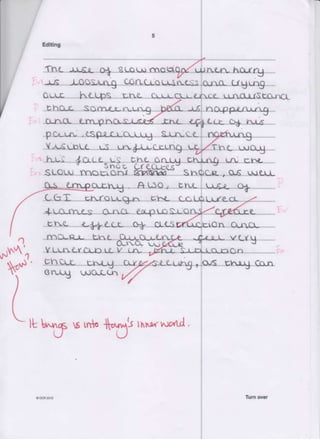 5
Editing
The use of slow motion when harry
Ex is loosing conciousness and crying
out helps the audience understand
P that something bad is happening
Ex and emphasises the effect of his
pain, especially since nothing
visible is inflicting it. The way
En his face is the only thing in the
shot creates
slow motion shock, as well
as empathy. Also, the use of
CGI through the coloured
flames and explosions create Ex
the effect of destruction and
make the audience feel very
and weak
vulnerable in the situation Ex
that they are seeing, as they can
only watch.
Why?
How?
It brings us into Harry's inner world.
Turn over